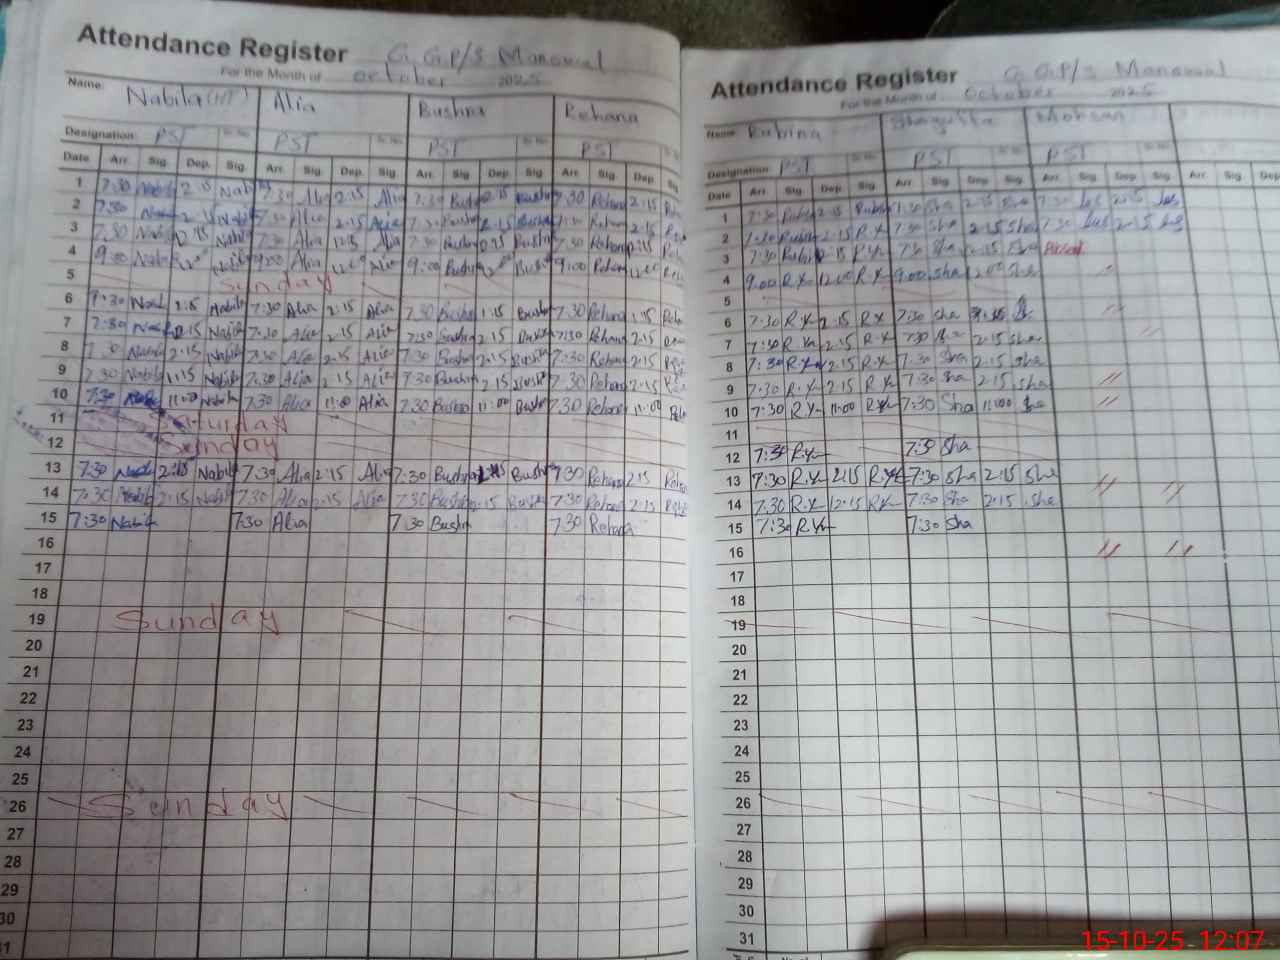 Attendance Register G.G.P/S Manowal
For the Month of October 2025
Name: Nabila (HT) Alia Bushra Rehana
Designation: PST PST PST PST
Date Arr. Sig. Dep. Sig. Arr. Sig. Dep. Sig. Arr. Sig. Dep. Sig. Arr. Sig. Dep. Sig.
1 7:30 Nabila 2:15 Nabila 7:30 Alia 2:15 Alia 7:30 Bushra 2:15 Bushra 7:30 Rehana 2:15
2 7:30 2:15 Nabila 7:30 Alia 2:15 Alia 7:30 Bushra 2:15 Bushra 7:30 Rehana 2:15
3 7:30 Nabila 2:15 Nabila 7:30 Alia 12:15 Alia 7:30 Bushra 2:15 Bushra 7:30 Rehana 2:15
4 9:00 Nabila 12:00 Nabila 9:00 Alia 12:00 Alia 9:00 Bushra 12:00 Bushra 9:00 Rehana 12:00
5 Sunday
6 7:30 1:15 Nabila 7:30 Alia 2:15 Alia 7:30 Bushra 1:15 Bushra 7:30 Rehana 1:15
7 7:30 2:15 Nabila 7:30 Alia 2:15 Alia 7:30 Bushra 2:15 7:30 Rehana 2:15
8 7:30 2:15 Nabila 7:30 Alia 2:15 Alia 7:30 Bushra 2:15 Bushra 7:30 Rehana 2:15
9 7:30 Nabila 1:15 Nabila 7:30 Alia 2:15 Alia 7:30 Bushra 2:15 Bushra 7:30 Rehana 2:15
10 7:30 11:00 Nabila 7:30 Alia 11:00 Alia 7:30 Bushra 11:00 Bushra 7:30 Rehana 11:00
11 Saturday
12 Sunday
13 7:30 2:15 Nabila 7:30 Alia 2:15 Alia 7:30 Bushra Bushra 7:30 Rehana 2:15
14 7:30 Nabila 2:15 Nabila 7:30 Alia 2:15 Alia 7:30 Bushra 2:15 Bushra 7:30 Rehana 2:15
15 7:30 Nabila 7:30 Alia 7:30 Bushra 7:30 Rehana
16
17
18
19 Sunday
20
21
22
23
24
25
26 Sunday
27
28
29
30
31
Attendance Register G.G.P/S Manowal
For the Month of October 2025
Name: Rubina Shagufta Mohsan
Designation: PST PST PST
Date Arr. Sig. Dep. Sig. Arr. Sig. Dep. Sig. Arr. Sig. Dep. Sig. Arr. Sig. Dep
1 7:30 Rubina 2:15 Rubina 7:30 Sha 2:15 Sha 7:30 2:15
2 7:30 Rubina 2:15 R.Y 7:30 Sha 2:15 Sha 7:30 2:15
3 7:30 Rubina 2:15 R.Y 7:30 Sha 2:15 Sha
4 9:00 R.Y 12:00 R.Y 9:00 Sha 12:00 Sha "
5
6 7:30 R.Y 2:15 R.Y 7:30 Sha "
7 7:30 R.Y 2:15 R.Y 7:30 Sha 2:15 Sha "
8 7:30 R.Y 2:15 R.Y 7:30 Sha 2:15 Sha
9 7:30 R.Y 2:15 R.Y 7:30 Sha 2:15 Sha "
10 7:30 R.Y 11:00 R.Y 7:30 Sha 11:00 Sha "
11
12 7:30 R.Y 7:30 Sha
13 7:30 R.Y 2:15 R.Y 7:30 Sha 2:15 Sha " "
14 7:30 R.Y 2:15 R.Y 7:30 Sha 2:15 Sha
15 7:30 R.Y 7:30 Sha
16 " "
17
18
19
20
21
22
23
24
25
26
27
28
29
30
31
15-10-25 - 12:07